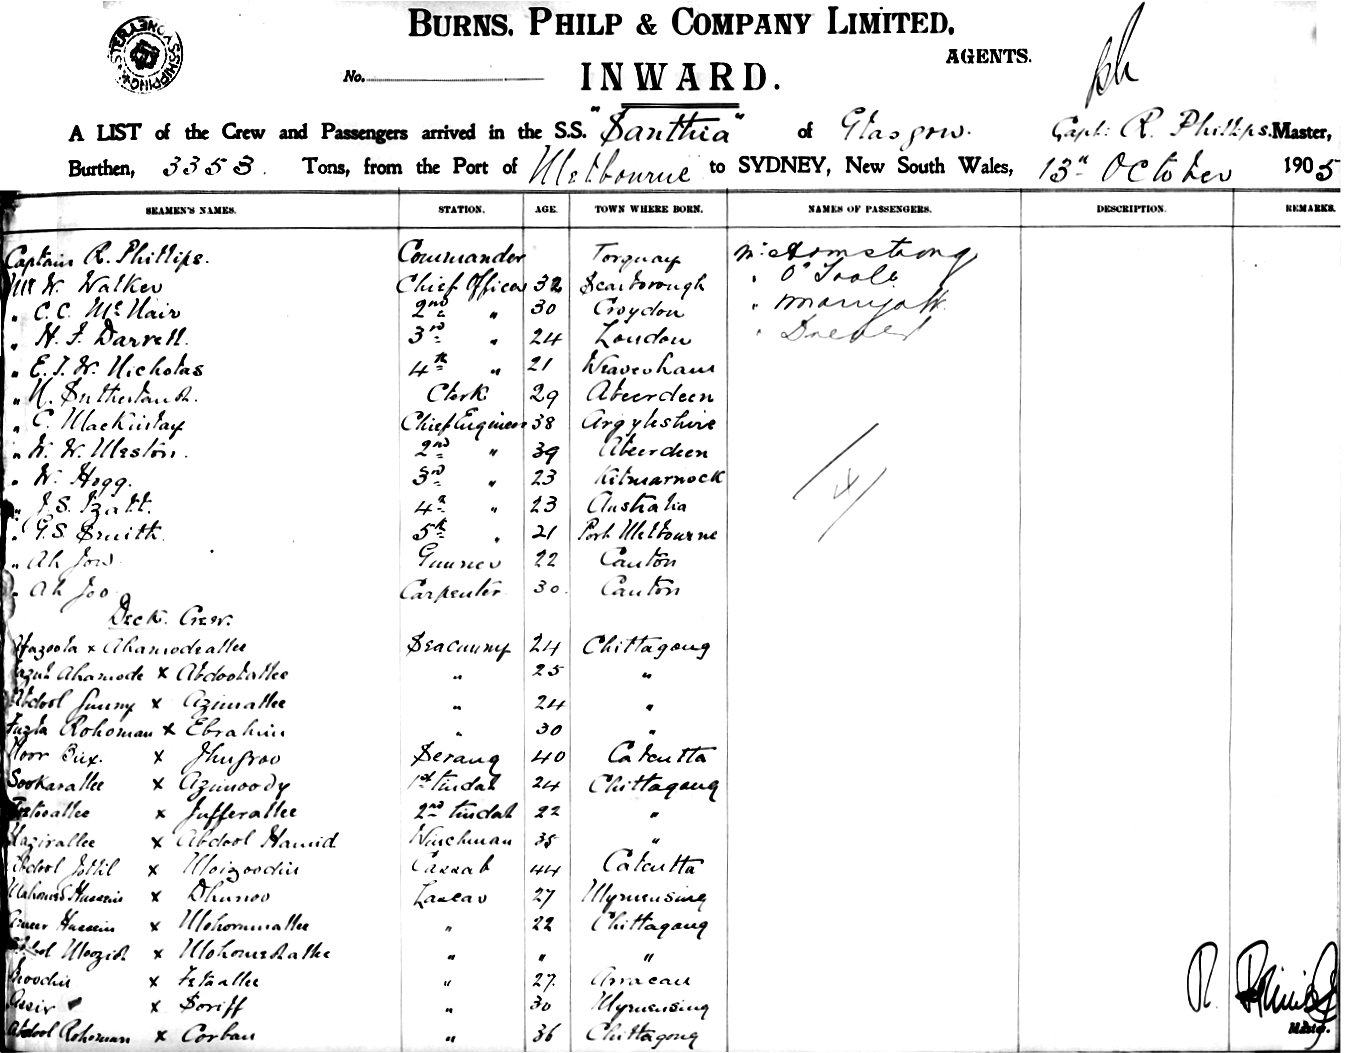 BURNS, PHILP & COMPANY LIMITED,
AGENTS.
No.
INWARD.
A LIST of the Crew and Passengers arrived in the S.S. "Santhia" of Glasgow. Capt: R. Phillips. Master,
Burthen, 3353. Tons, from the Port of Melbourne to SYDNEY, New South Wales, 13th October 1905
SEAMEN'S NAMES. STATION. AGE. TOWN WHERE BORN. NAMES OF PASSENGERS. DESCRIPTION. REMARKS.
Captain R. Phillips. Commander Torquay Mr Armstrong
Mr W. Walker Chief Officer 32 Scarborough " O'Toole
" C.C. McNair 2nd " 30 Croydon "
" H. F. Darrell. 3rd " 24 London "
" E.J.W. Nicholas 4th " 21 Weavenham
" Sutherland. Clerk 29 Aberdeen
" C. MacKinlay Chief Engineer 38 Argyleshire
" W. W. Weston. 2nd " 39 Aberdeen
" W. Hogg. 3rd " 23 Kilmarnock
" J.S. Izatt. 4th " 23 Australia
" G.S. Smith 5th " 21 Port Melbourne
" Ah Gunner 22 Canton
" Ah Carpenter 30. Canton
Deck. Crew.
x Ahamodeallee Seacunny 24 Chittagong
Ahamode x 25 "
Abdool Gunny x Azimallee " 24 "
Rohoman x Ebrahim " 30 "
Noor Bux. x Serang 40 Calcutta
Sookarallee x Azimoody 1st tindal 24 Chittagong
x Jufferallee 2nd tindal 22 "
Nazirallee x Abdool Hamid Winchman 35 "
Abdool x Moizoodin Cassab 44 Calcutta
Mahomed Hussein x Dhunoo Lascar 27 Mymensing
Ameer Hussein x " 22 Chittagong
x " " "
x " 27. Arracan
x Soriff " 30 Mymensing
Abdool Rohoman x Corban " 36 Chittagong
Master.